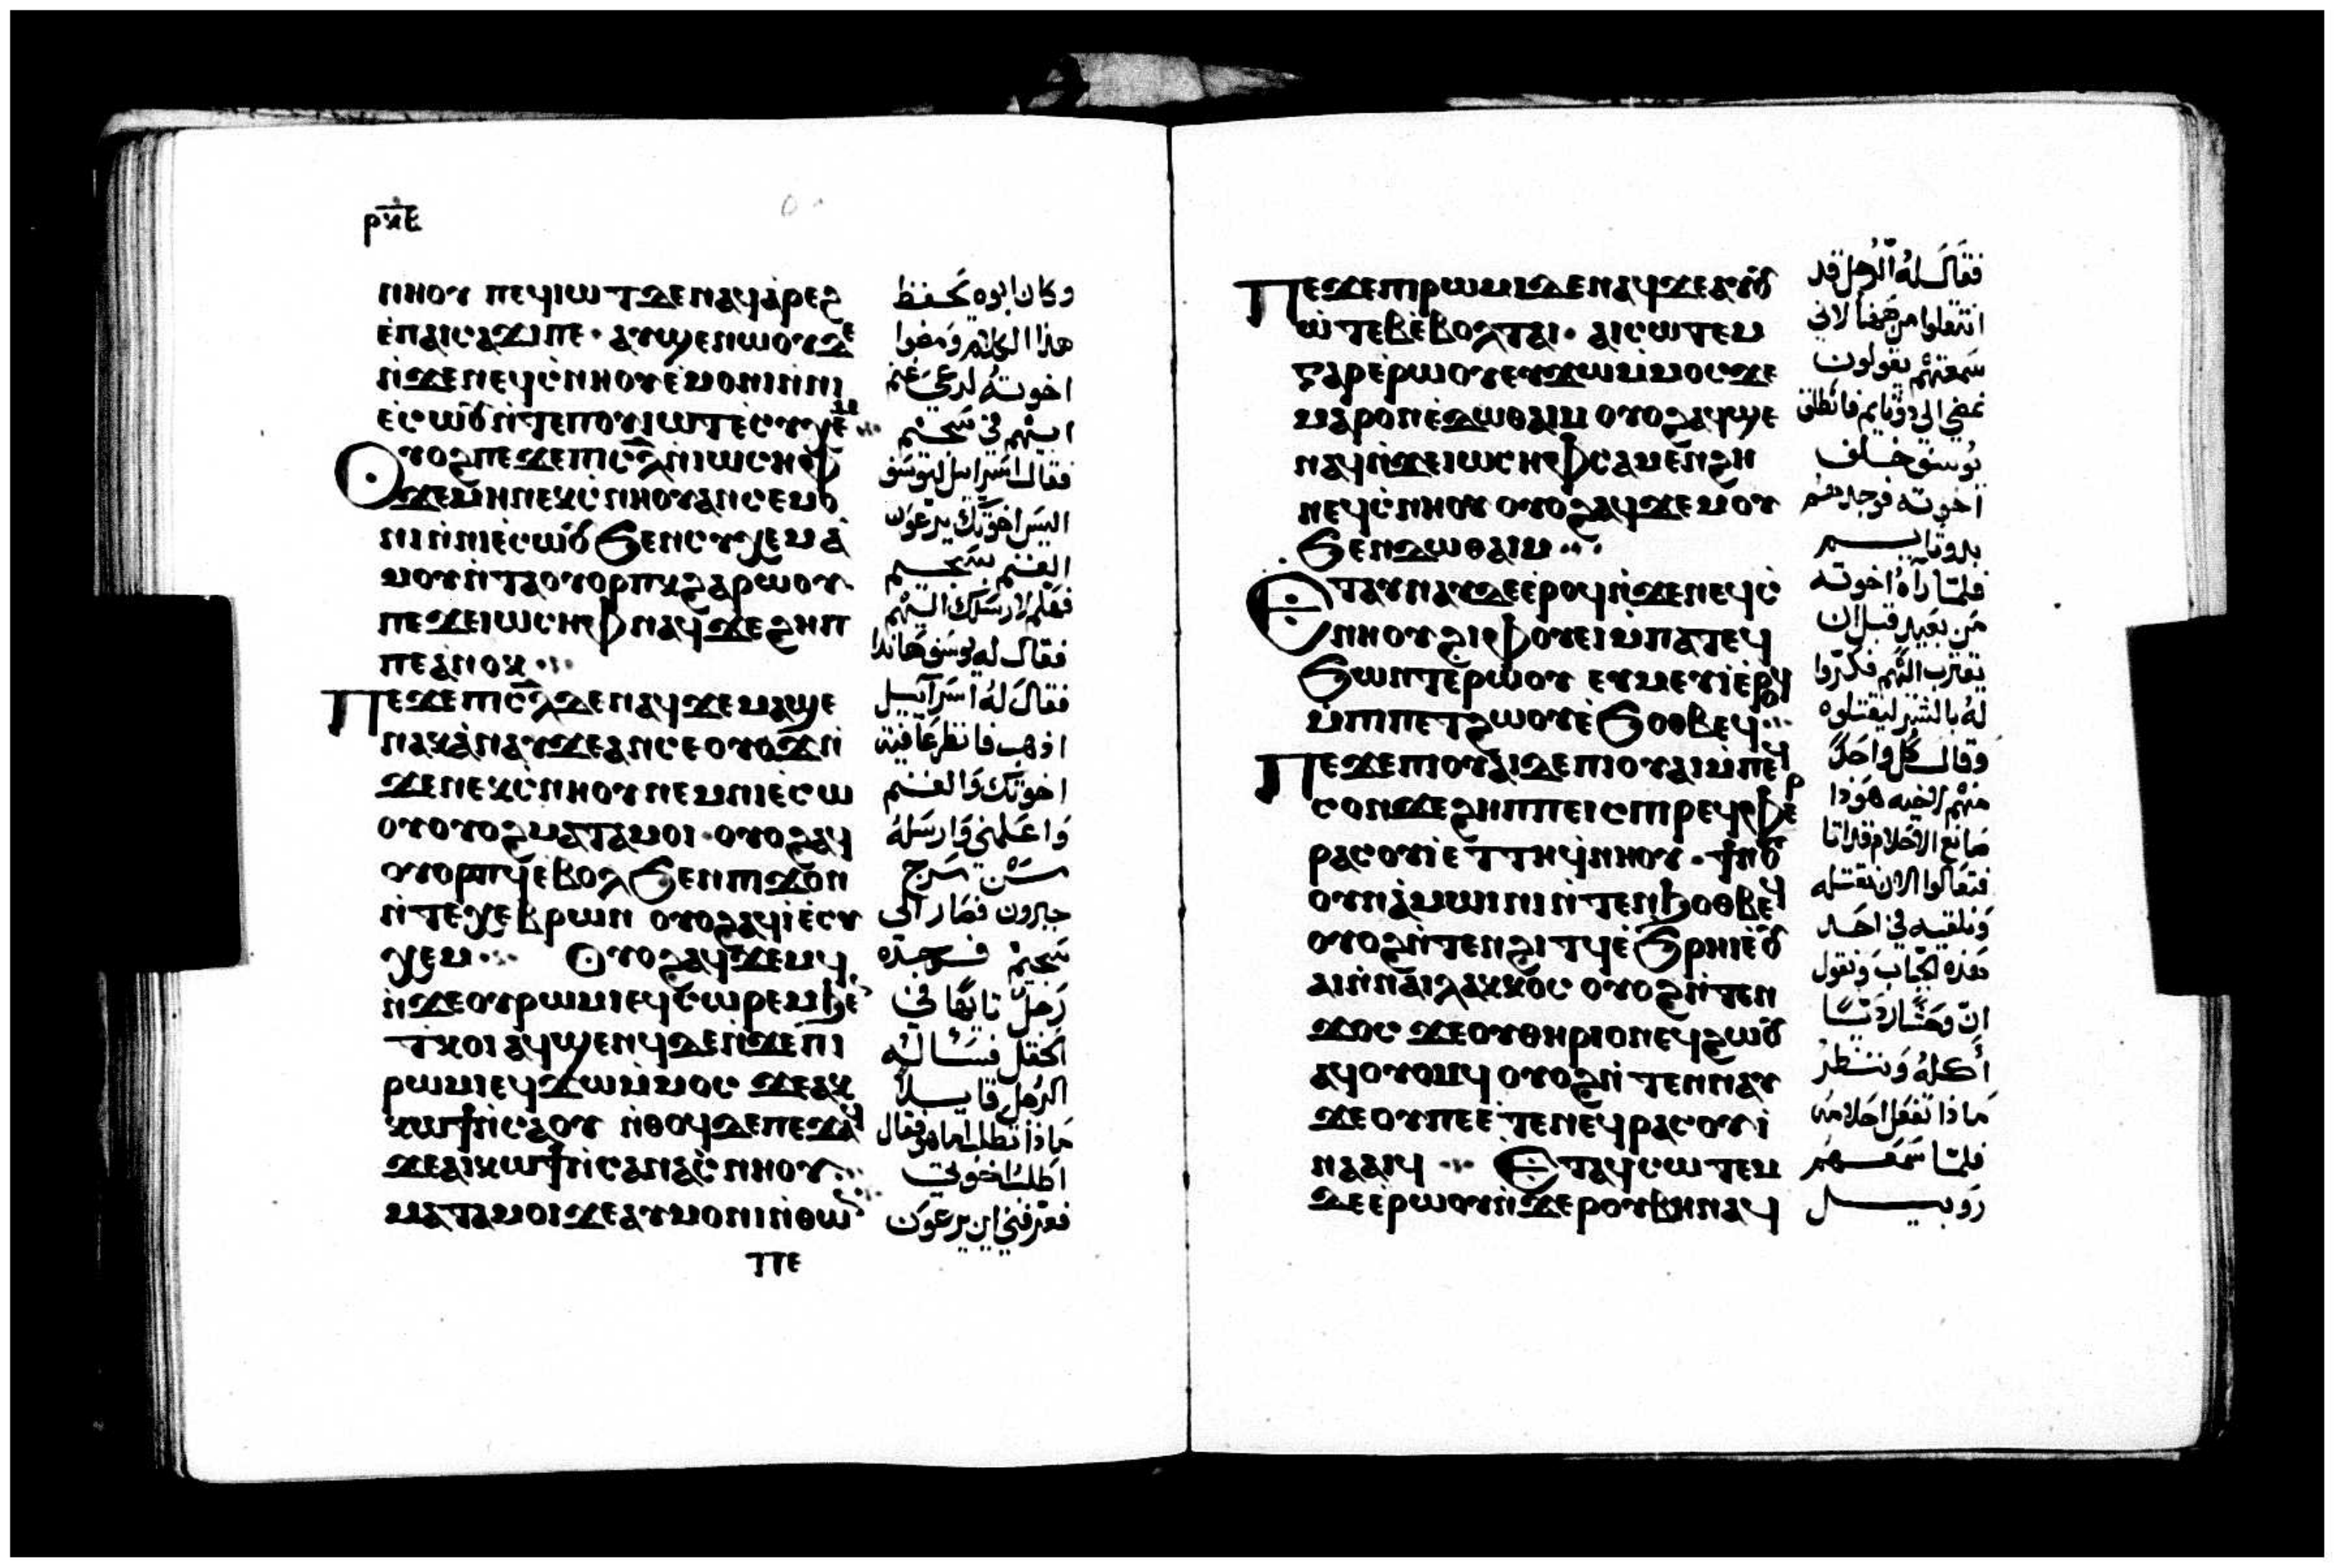 ⲣⲝⲉ
ⲛⲏⲟⲩ ⲡⲉϥⲓⲱⲧ ⲇⲉ ⲛⲁϥⲁ̀ⲣⲉϩ
ⲉ̀ⲡⲁⲓⲥⲁϫⲓ ⲡⲉ · ⲁⲩϣⲉⲛⲱⲟⲩ ⲇⲉ
ⲛ̀ϫⲉ ⲛⲉϥⲥ̀ⲛⲏⲟⲩ ⲉ̀ⲙⲟⲛⲓ ⲛ̀ⲛⲓ
ⲉ̀ⲥⲱⲟⲩ ⲛ̀ⲧⲉ ⲡⲟⲩⲓⲱⲧ ⲉ̀ⲥⲩⲭⲉⲙ
ⲟⲩⲟϩ ⲡⲉϫⲉ ⲡⲓⲥ̅ⲗ̅ ⲛ̀ⲓⲱⲥⲏⲫ
ϫⲉ ⲙⲏ ⲛⲉⲕⲥ̀ⲛⲏⲟⲩ ⲁⲛ ⲥⲉⲙⲟ
ⲛⲓ ⲛ̀ⲛⲓⲉ̀ⲥⲱⲟⲩ ϧⲉⲛ ⲥⲩⲭⲉⲙ ⲁ̀
ⲙⲟⲩ ⲛ̀ⲧⲁⲟⲩⲟⲣⲡⲕ ϩⲁⲣⲱⲟⲩ
ⲡⲉϫⲉ ⲓⲱⲥⲏⲫ ⲛⲁϥ ϫⲉ ϩⲏⲡ
ⲡⲉ ⲁ̀ⲛⲟⲕ
ⲡⲉϫⲉ ⲡⲓⲥ̅ⲗ̅ ⲇⲉ ⲛⲁϥ ϫⲉ ⲙⲁϣⲉ
ⲛⲁⲕ ⲁ̀ⲛⲁⲩ ϫⲉ ⲁⲛ ⲥⲉⲟⲩⲟϫ ⲛ̀
ϫⲉ ⲛⲉⲕⲥ̀ⲛⲏⲟⲩ ⲛⲉⲙ ⲛⲓⲉ̀ⲥⲱ
ⲟⲩ ⲟⲩⲟϩ ⲙⲁⲧⲁⲙⲟⲓ · ⲟⲩⲟϩ ⲁϥ
ⲟⲩⲟⲣⲡϥ ⲉ̀ⲃⲟⲗ ϧⲉⲛ ⲡⲓϫⲟⲛ
ⲛ̀ⲧⲉ ⲭⲉⲃⲣⲱⲛ ⲟⲩⲟϩ ⲁϥⲓ̀ ⲉ̀ⲥⲩ
ⲭⲉⲙ ⲟⲩⲟϩ ⲁϥϫⲉⲙϥ
ⲛ̀ϫⲉ ⲟⲩⲣⲱⲙⲓ ⲉϥⲥⲱⲣⲉⲙ ϧⲉⲛ
ⲧⲕⲟⲓ ⲁϥϣⲉⲛϥ ⲇⲉ ⲛ̀ϫⲉ ⲡⲓ
ⲣⲱⲙⲓ ⲉϥϫⲱ ⲙ̀ⲙⲟⲥ ϫⲉ ⲁⲕ
ⲕⲱϯ ⲛ̀ⲥⲁ ⲟⲩ ⲛ̀ⲑⲟϥ ⲇⲉ ⲡⲉϫⲁϥ
ϫⲉ ⲁⲓⲕⲱϯ ⲛ̀ⲥⲁ ⲛⲁⲥ̀ⲛⲏⲟⲩ
ⲙⲁⲧⲁⲙⲟⲓ ϫⲉ ⲁⲩⲙⲟⲛⲓ ⲛ̀ⲑⲱⲛ
ⲡⲉ
وكان ابوه يحفظ
هذا الكلام ومضوا
اخوته لرعي غنم
ابيهم في سخيم
فقال اسراييل ليوسف
اليس اخوتك يرعون
الغنم بسخيم
فهلم لارسلك اليهم
فقال له يوسف هانذا
فقال له اسراييل
اذهب فانظر عافية
اخوتك والغنم
واعلمني وارسله
من مرج
حبرون فصار الى
سخيم فوجده
رجل تايها في
الحقل فساله
الرجل قايلا
ماذا تطلب اما هو فقال
اطلب اخوتي
فعرفني اين يرعون
ⲡⲉϫⲉ ⲡⲓⲣⲱⲙⲓ ⲇⲉ ⲛⲁϥ ϫⲉ ⲁⲩⲟⲩ
ⲱ̀ⲧⲉⲃ ⲉ̀ⲃⲟⲗ ⲧⲁⲓ · ⲁⲓⲥⲱⲧⲉⲙ
ⲅⲁⲣ ⲉ̀ⲣⲱⲟⲩ ⲉⲩϫⲱ ⲙ̀ⲙⲟⲥ ϫⲉ
ⲙⲁⲣⲟⲛ ⲉ̀ⲇⲱⲑⲁⲓⲙ ⲟⲩⲟϩ ⲁϥϣⲉ
ⲛⲁϥ ⲛ̀ϫⲉ ⲓⲱⲥⲏⲫ ⲥⲁⲙⲉⲛϩⲏ
ⲛⲉϥⲥ̀ⲛⲏⲟⲩ ⲟⲩⲟϩ ⲁϥϫⲉⲙⲟⲩ
ϧⲉⲛ ⲇⲱⲑⲁⲓⲙ
ⲉⲧⲁⲩⲛⲁⲩ ⲇⲉ ⲉ̀ⲣⲟϥ ⲛ̀ϫⲉ ⲛⲉϥⲥ̀
ⲛⲏⲟⲩ ϩⲓ ⲫⲟⲩⲉⲓ ⲙ̀ⲡⲁⲧⲉϥ
ϧⲱⲛⲧ ⲉ̀ⲣⲱⲟⲩ ⲉⲩⲙⲉⲩⲓ ⲉ̀ⲣⲟϥ
ⲙ̀ⲡⲓⲡⲉⲧϩⲱⲟⲩ ⲉ̀ϧⲟⲑⲃⲉϥ
ⲡⲉϫⲉ ⲡⲓⲟⲩⲁⲓ ⲇⲉ ⲡⲓⲟⲩⲁⲓ ⲙ̀ⲡⲉϥ
ⲥⲟⲛ ϫⲉ ϩⲏⲡⲡⲉ ⲓⲥ ⲡⲓⲣⲉϥⲫⲉⲣ
ⲣⲁⲥⲟⲩⲓ ⲉⲧⲧⲏ ϥ̀ⲛⲏⲟⲩ · ϯⲛⲟⲩ
ⲟⲩⲛ ⲁ̀ⲙⲱⲓⲛⲓ ⲛ̀ⲧⲉⲛϧⲟⲑⲃⲉϥ
ⲟⲩⲟϩ ⲛ̀ⲧⲉⲛϩⲓⲧϥ ⲉ̀ϧⲣⲏⲓ ⲉ̀ⲟⲩ
ⲁⲓ ⲛ̀ⲛⲁⲓⲗⲁⲕⲕⲟⲥ ⲟⲩⲟϩ ⲛ̀ⲧⲉⲛ
ϫⲟⲥ ϫⲉ ⲟⲩⲑⲏⲣⲓⲟⲛ ⲉϥϩⲱⲟⲩ
ⲁϥⲟⲩⲟⲙϥ ⲟⲩⲟϩ ⲛ̀ⲧⲉⲛⲛⲁⲩ
ϫⲉ ⲟⲩ ⲡⲉ ⲉ̀ⲧⲉ ⲛⲉϥⲣⲁⲥⲟⲩⲓ
ⲛⲁⲁⲓϥ ⲉⲧⲁϥⲥⲱⲧⲉⲙ
ⲇⲉ ⲉ̀ⲣⲱⲟⲩ ⲛ̀ϫⲉ ⲣⲟⲩⲃⲏⲛ ⲁϥ
فقال له الرجل قد
انتقلوا من ههنا لاني
سمعتهم يقولون
نمضي الى دوثايم فانطلق
يوسف خلف
اخوته فوجدهم
بدوثايم
فلما راه اخوته
من بعيد قبل ان
يقترب اليهم فكروا
له بالشر ليقتلوه
وقال كل واحد
منهم لاخيه هوذا
صانع الاحلام قد اتا
فتعالوا الان نقتله
ونلقيه في احد
هذه الجباب ونقول
ان وحشا رديا
أكله وننظر
ماذا تفعل احلامه
فلما سمعهم
روبيل